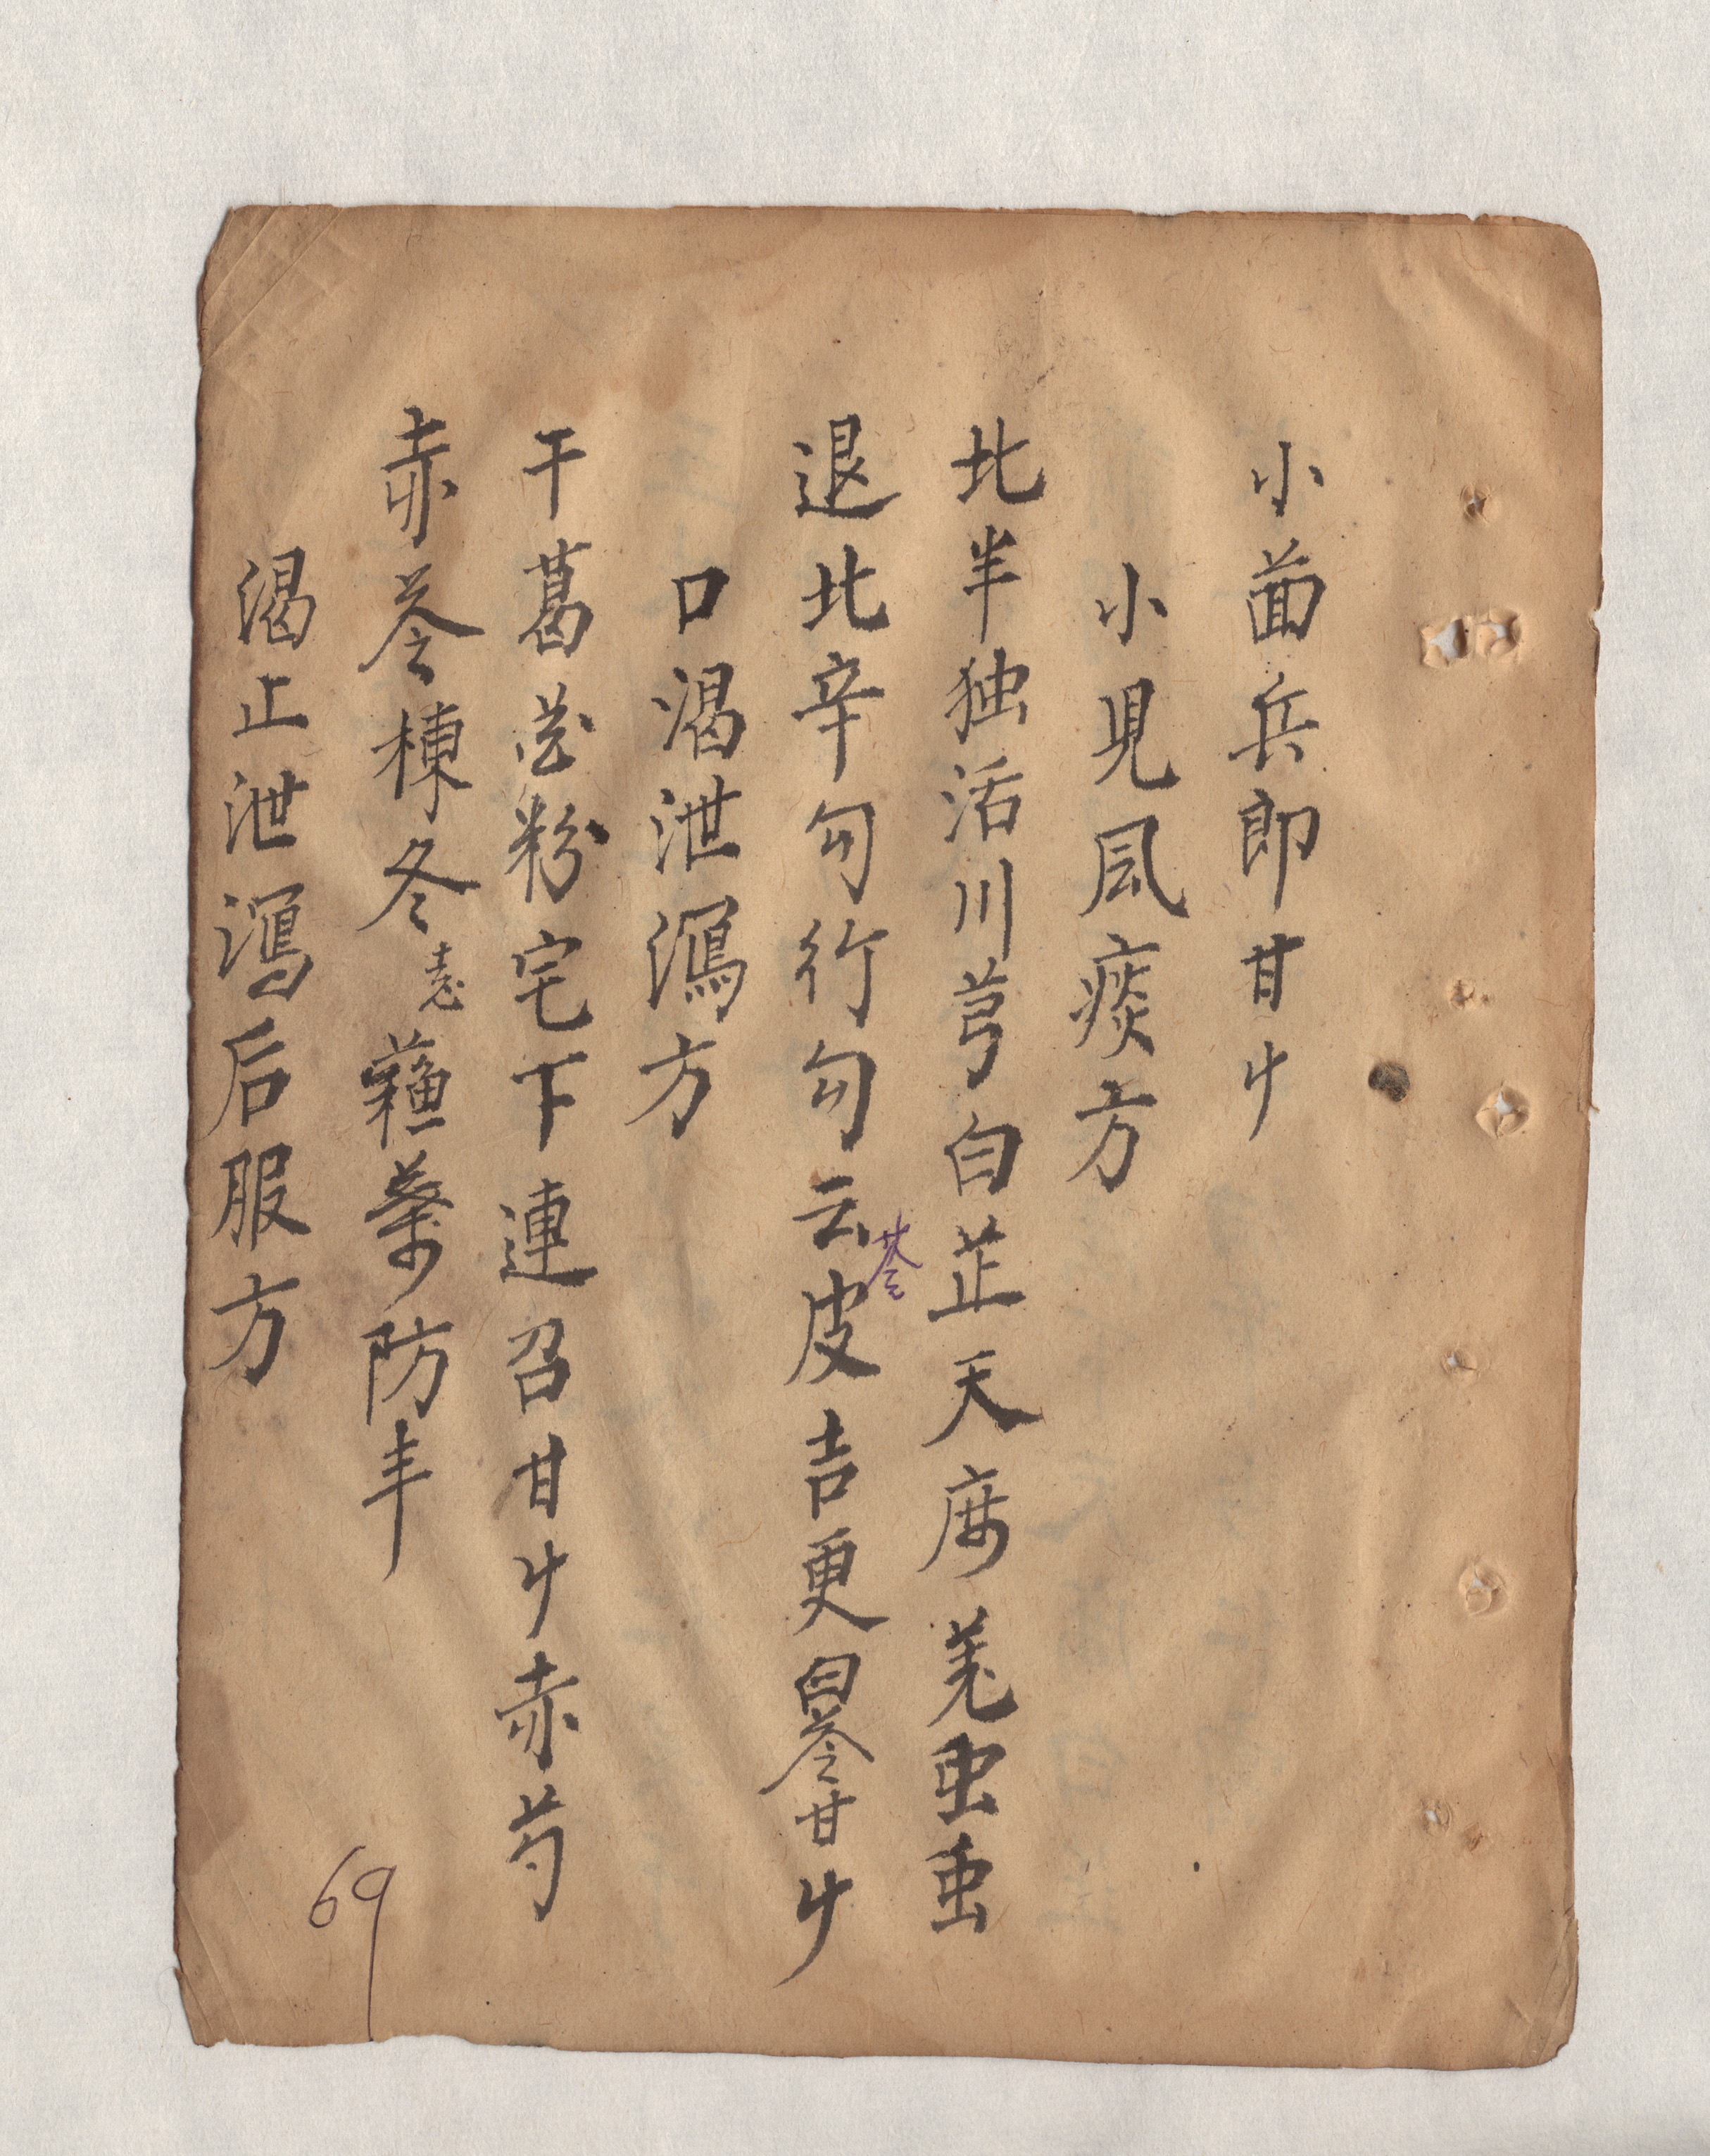 小茴兵郎甘廾
小児風痰方
北半独活川芎白芷天庥羌虫虫
退北辛勾行勾云苓皮吉更白苓甘廾
口渴泄瀉方
干葛花粉宅下連召甘廾赤芍
赤苓楝冬志防丰
渴止泄瀉后服方
69